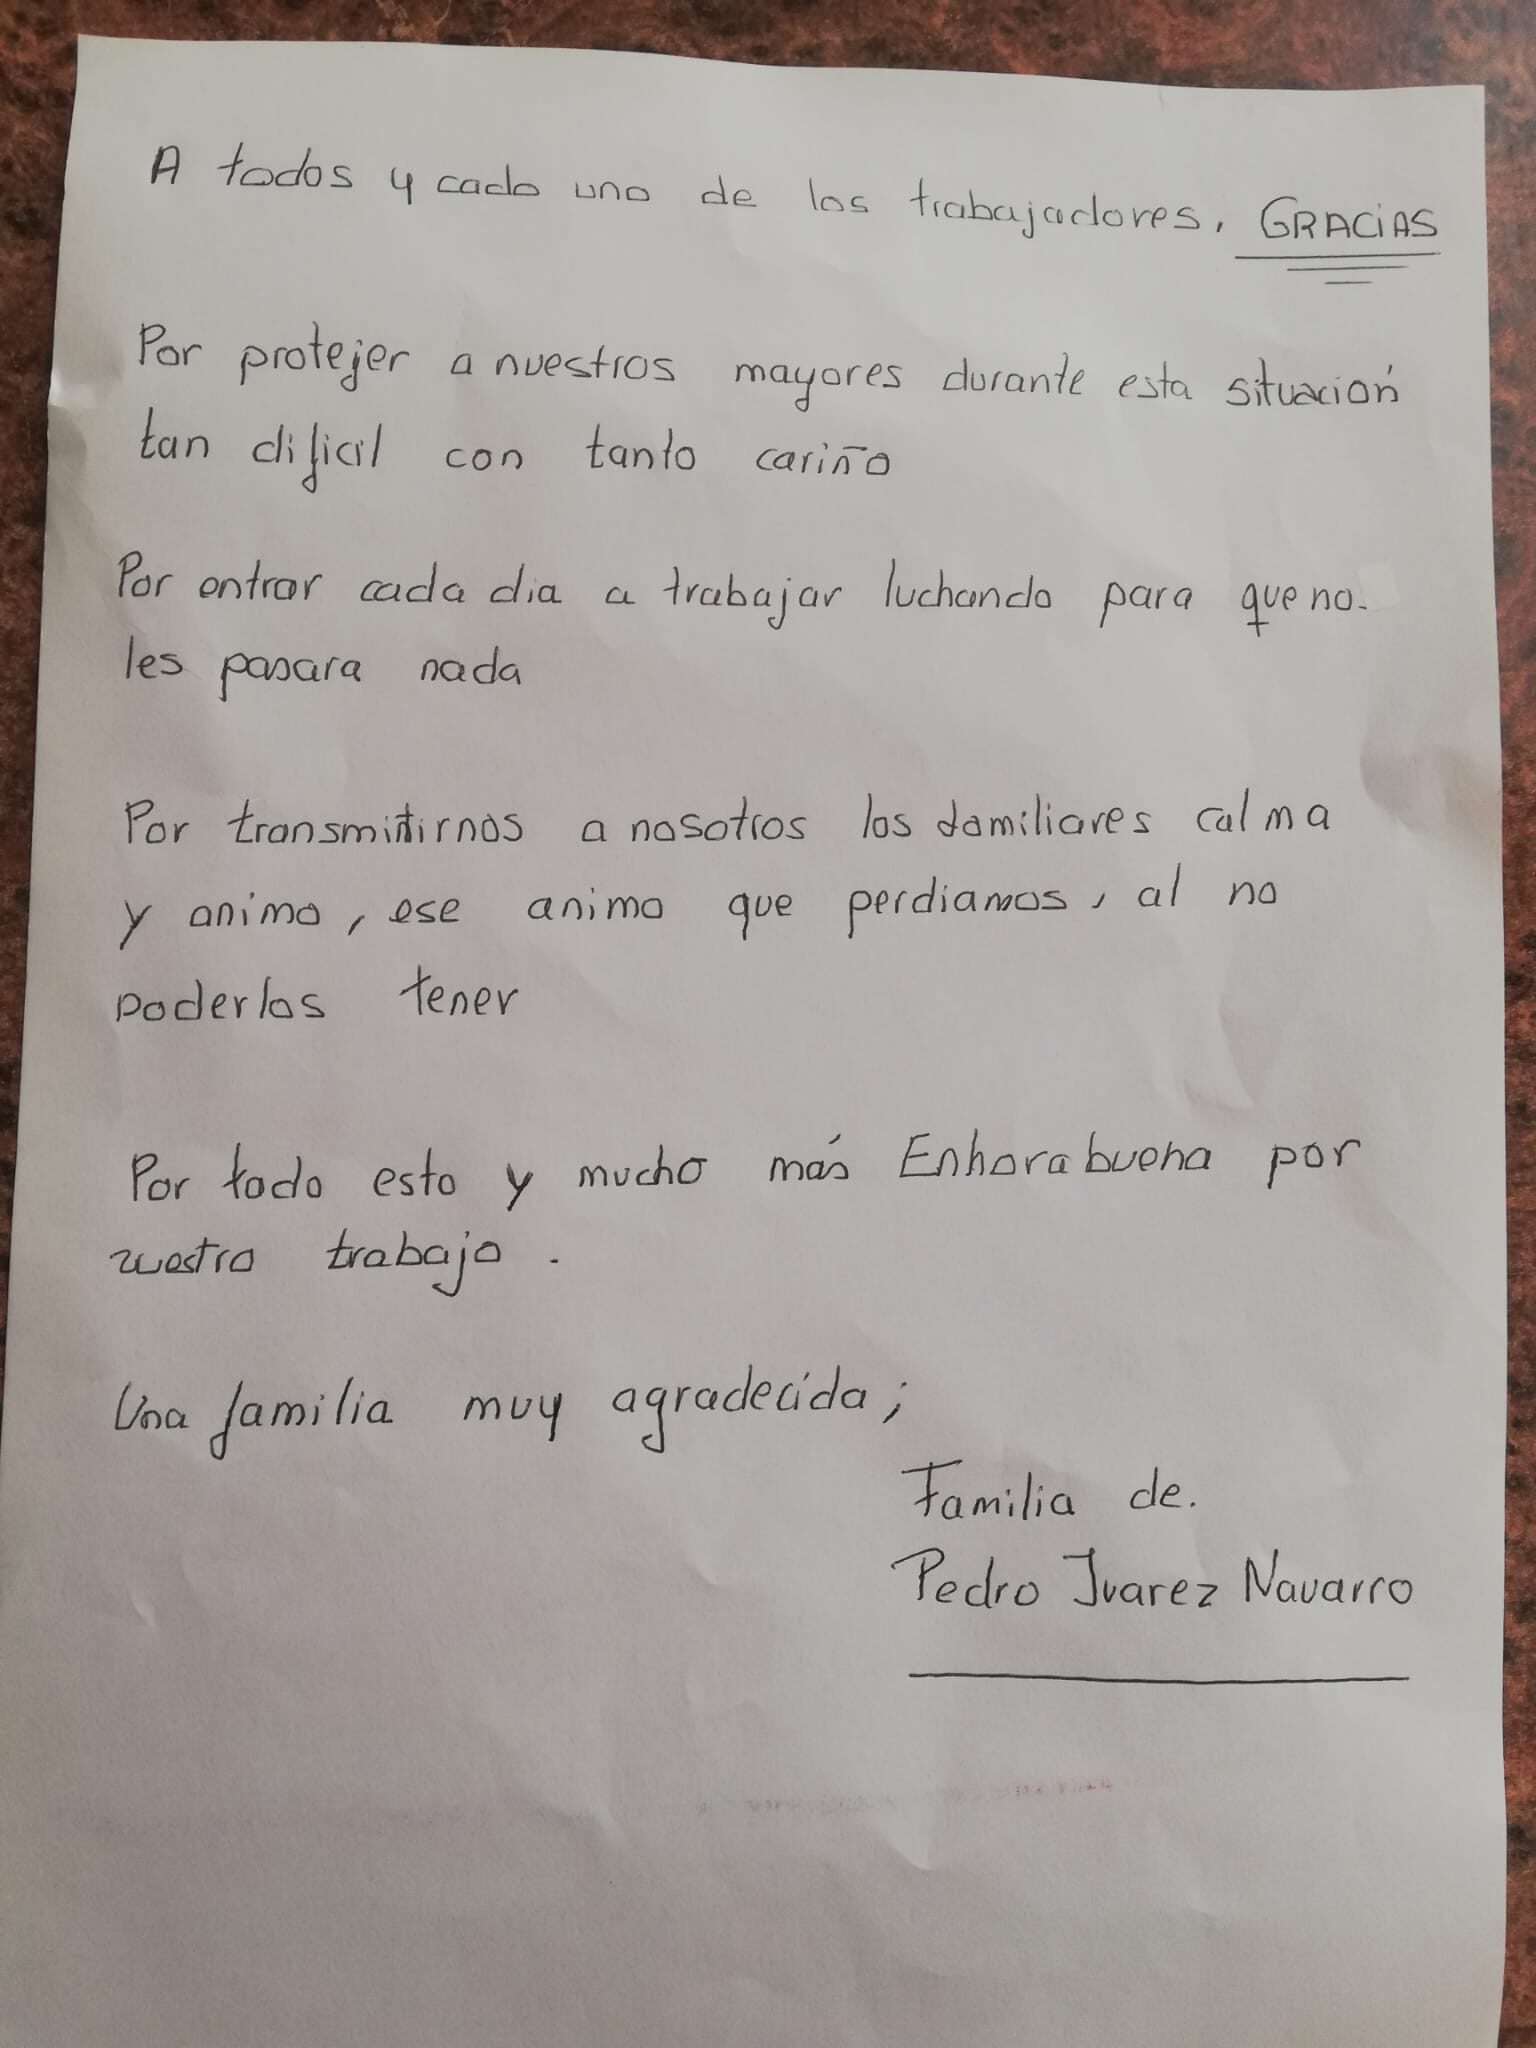 A todos y cada uno de los trabajadores, GRACIAS
Por protejer a nuestros mayores durante esta situación
tan dificil con tanto cariño
Por entrar cada dia a trabajar luchando para que no.
les pasara nada
Por transmitirnos a nosotros los familiares calma
y animo, ese animo que perdiamos, al no
poderlos tener
Por todo esto y mucho más Enhorabuena por
vuestro trabajo.
Una familia muy agradecida;
Familia de.
Pedro Juarez Navarro